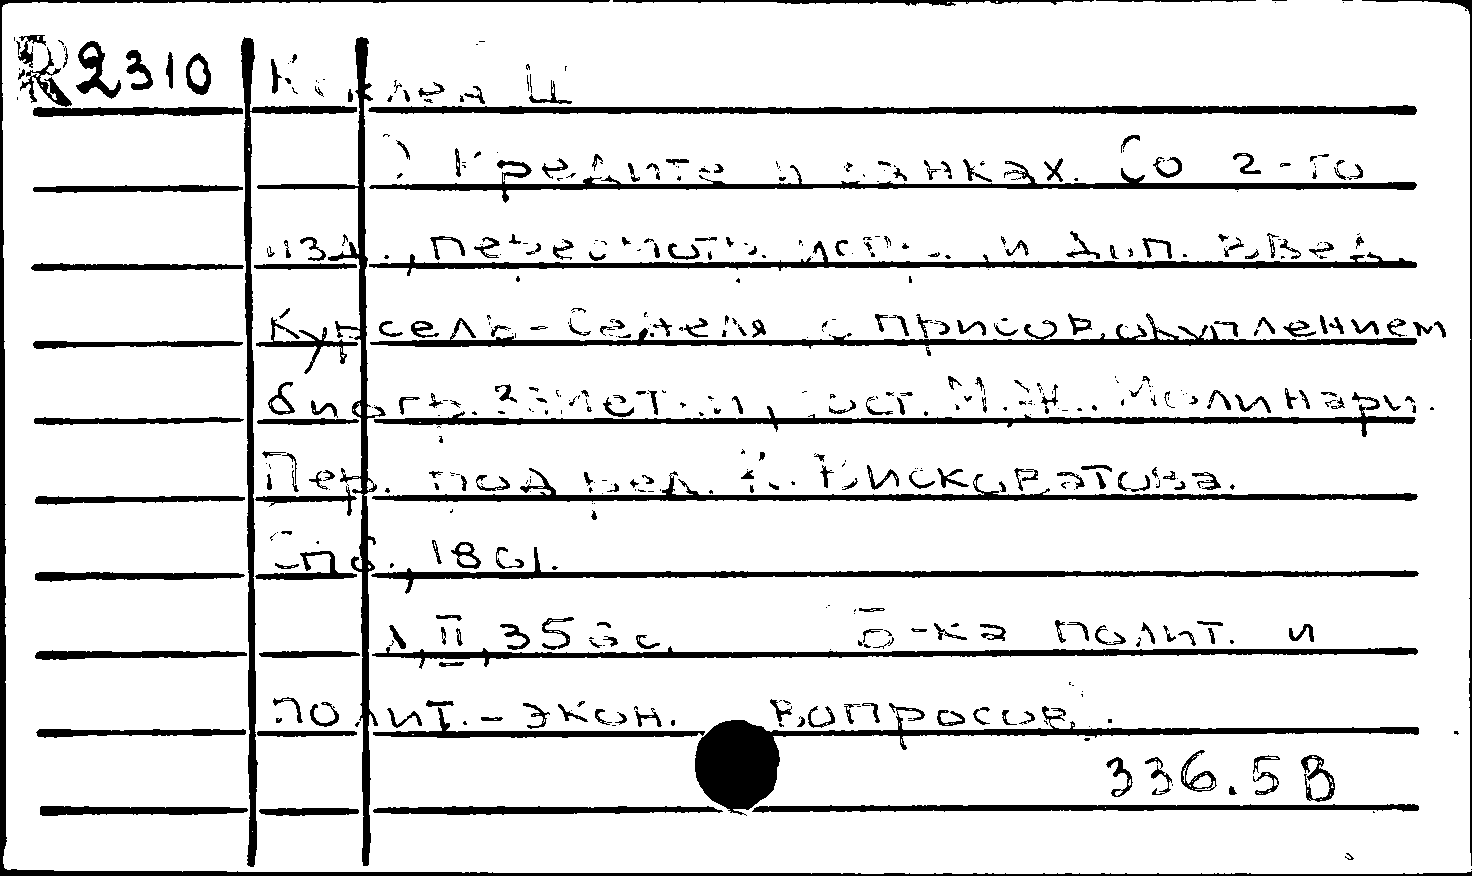 R2310 Коклен Ш
О кредите и банках. Со 2-го
изд., пересмотр. испр., и доп. В.Вед.
Курсель-Сенеля с присовокуплением
биогр. заметки, сост. М.Ж. Молинари.
Пер. под ред. Вискоратова.
Спб., 1861.
II, 356 с. Б-ка полит. и
полит.-экон. вопросов.
336.5В